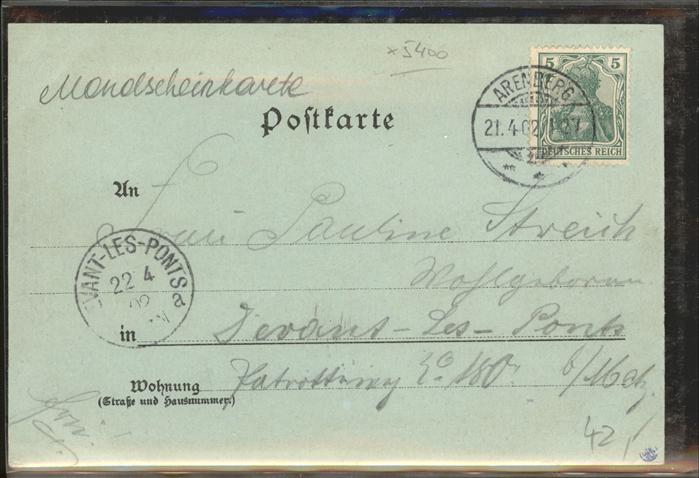 x5400
Mondscheinkarte
Postkarte
5 5
DEUTSCHES REICH
ARENBERG
21.4.02
An
Frau Pauline Streich
Wohlgeboren
DEVANT-LES-PONTS
22 4
02
a
in Devant-Les-Ponts
No 180 b/Metz
Wohnung
(Straße und Hausnummer.)
42,-